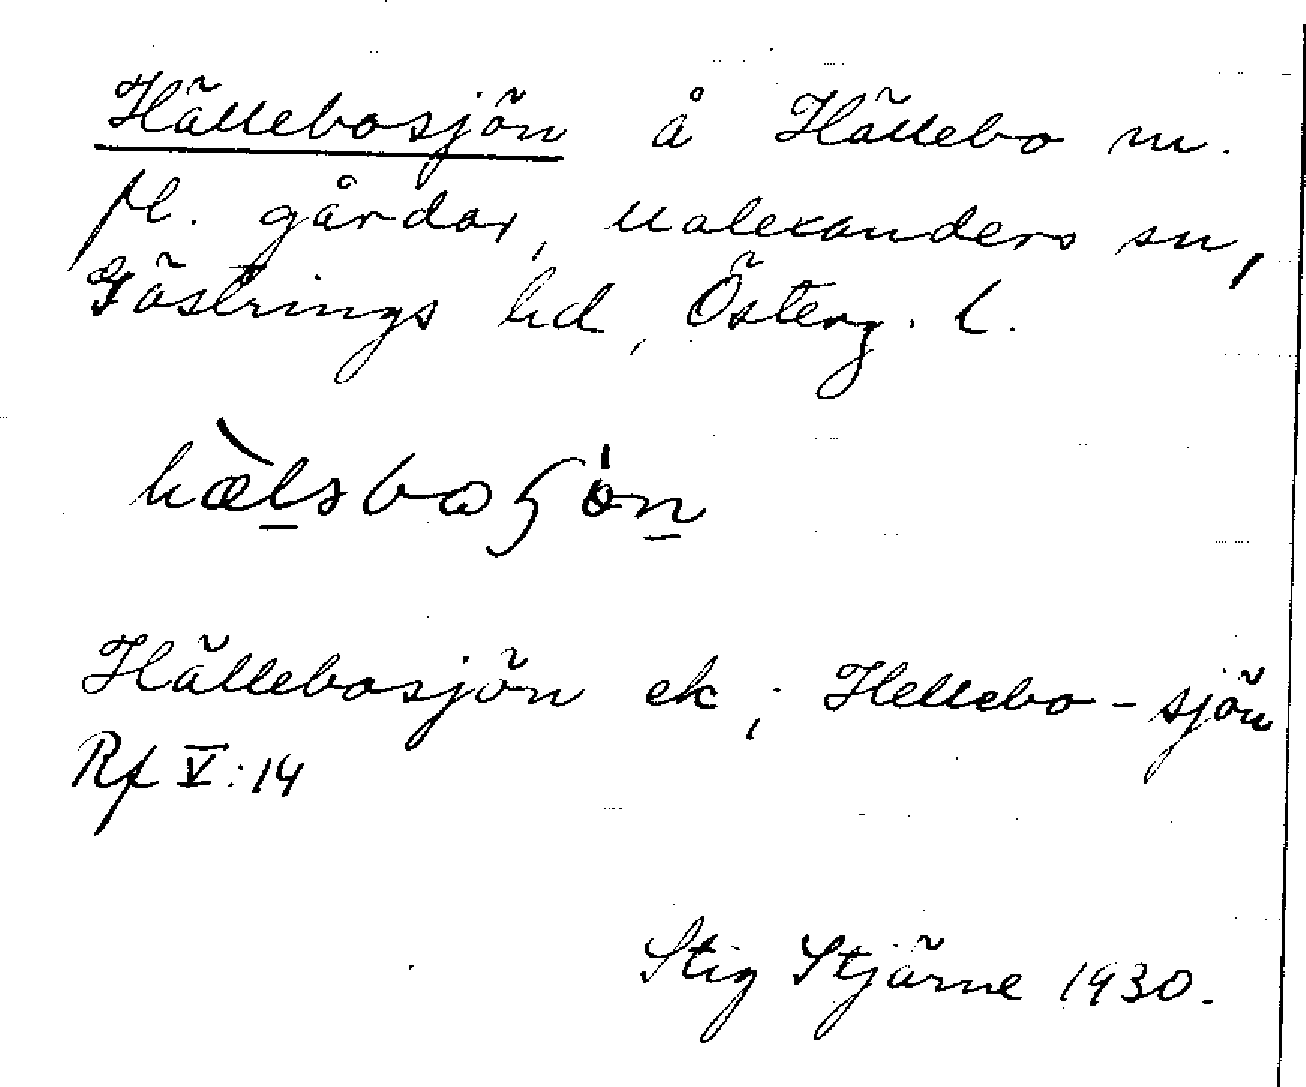 Hällebosjön å Hällebo m.
fl. gårdar, Ualexanders sn,
Göstrings hd, Österg. l.
hæ̀lsboʃön
Hällebosjön ek; Hellebo-sjön
Rf V:14
Stig Stjärne 1930.